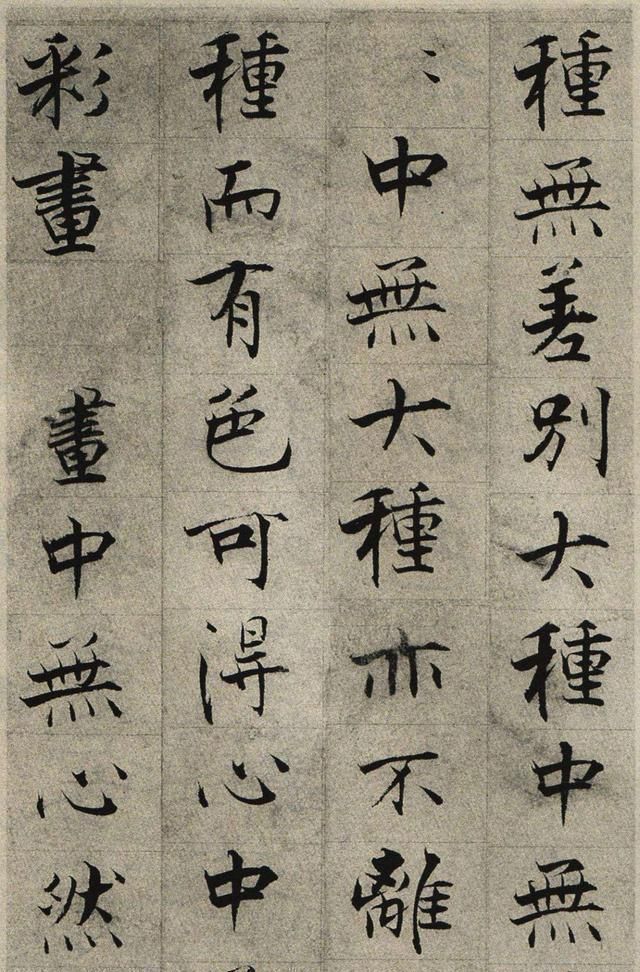 種無差別大種中無
〻中無大種亦不離
種而有色可得心中
彩畫　畫中無心然